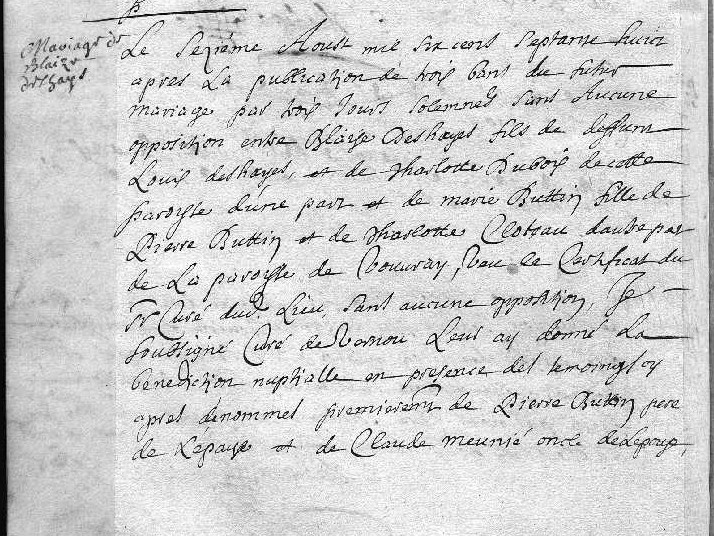 Mariage de
Blaize
deshays
Le Seziéme Aoust mil six cens Septante huict
apres La publication de trois bans du futur
mariage par trois Jours solemnels sans Aucune
opposition entre Blaise Deshayes fils de deffunt
Louis deshayes, et de charlotte Dubois de cette
paroisse d'une part et de marie Buttin fille de
Pierre Buttin et de charlotte Cloteau dautre part
de La paroisse de Vouvray, veu le Certificat du
Sr Curé dud. Lieu, sans aucune opposition, Je
soubsigné Curé de Vernou Leur ay donné La
benediction nuptialle en presence des temoings cy
apres denommes premieremt de Pierre Buttin pere
de Lepouse et de Claude meunié oncle de Lepouse,